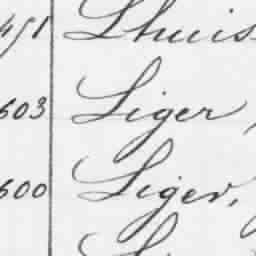 451 Lhuis
603 Liger,
600 Liger,